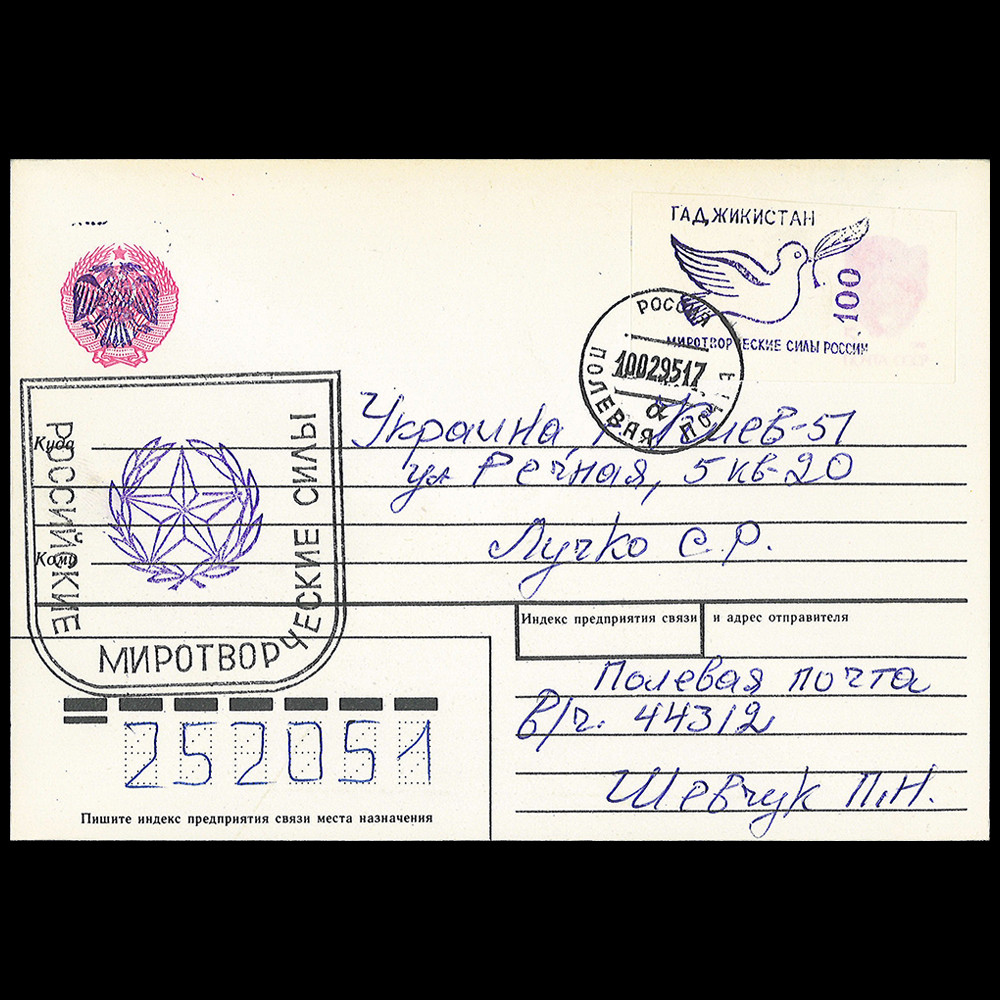 ТАДЖИКИСТАН
100
МИРОТВОРЧЕСКИЕ СИЛЫ РОССИИ
РОССИЯ
10029517
ПОЛЕВАЯ ПОЧТА
Куда
Украина, г. Киев-51
ул Речная, 5 кв-20
Кому
Лучко С.Р.
РОССИЙСКИЕ МИРОТВОРЧЕСКИЕ СИЛЫ
Индекс предприятия связи и адрес отправителя
Полевая почта
в/ч. 44312
Шевчук П.Н.
252051
Пишите индекс предприятия связи места назначения